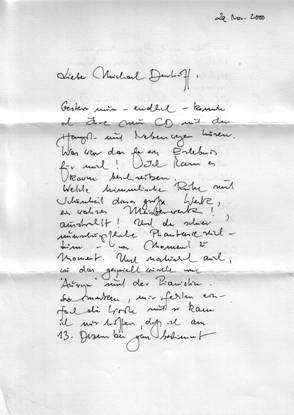 22. Nov. 2000
Liebe Michael Denhoff,
Gestern nun – endlich – konnte
ich Ihre neue CD mit den
Haupt- und Nebenwegen hören.
Was war das für ein Erlebnis
für mich! Ich kann es
kaum beschreiben.
Welche himmlische Ruhe und
Schönheit dieses große Werk,
ein wahres Meisterwerk!
ausstrahlt! Und der schier
unerschöpfliche Phantasiereich-
tum – von Moment zu
Moment. Und natürlich auch,
wie das gespielt wurde von
und der Pianistin.
mir fehlen ein-
fach die Worte und so kann
ich nur hoffen, daß ich am
13. Dezember ganz bestimmt